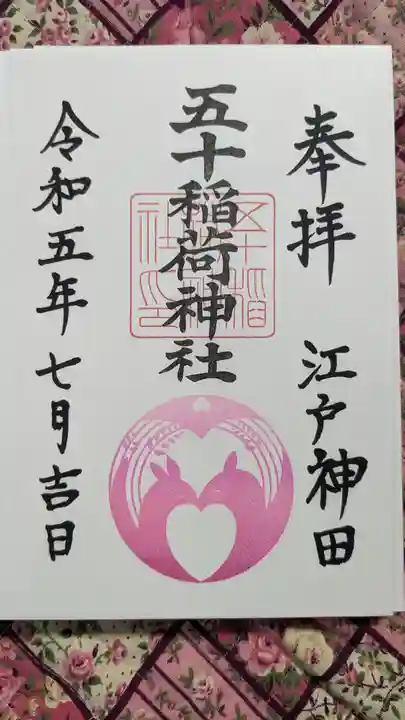 奉拝 江戸神田
五十稲荷神社
令和五年七月吉日